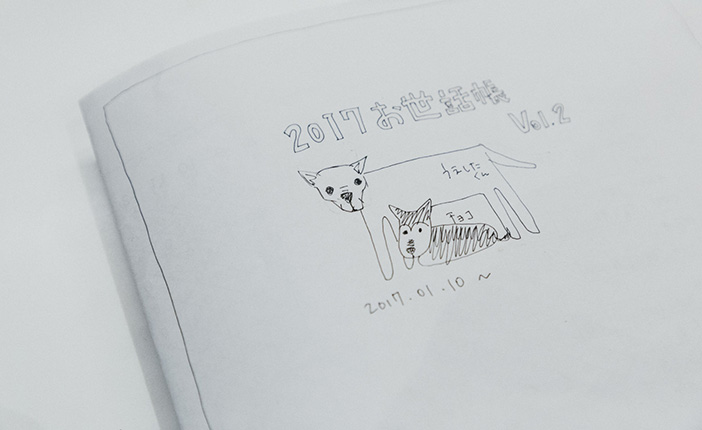 2017 お世話帳
Vol.2
うえしたくん
チョコ
2017.01.10 ~